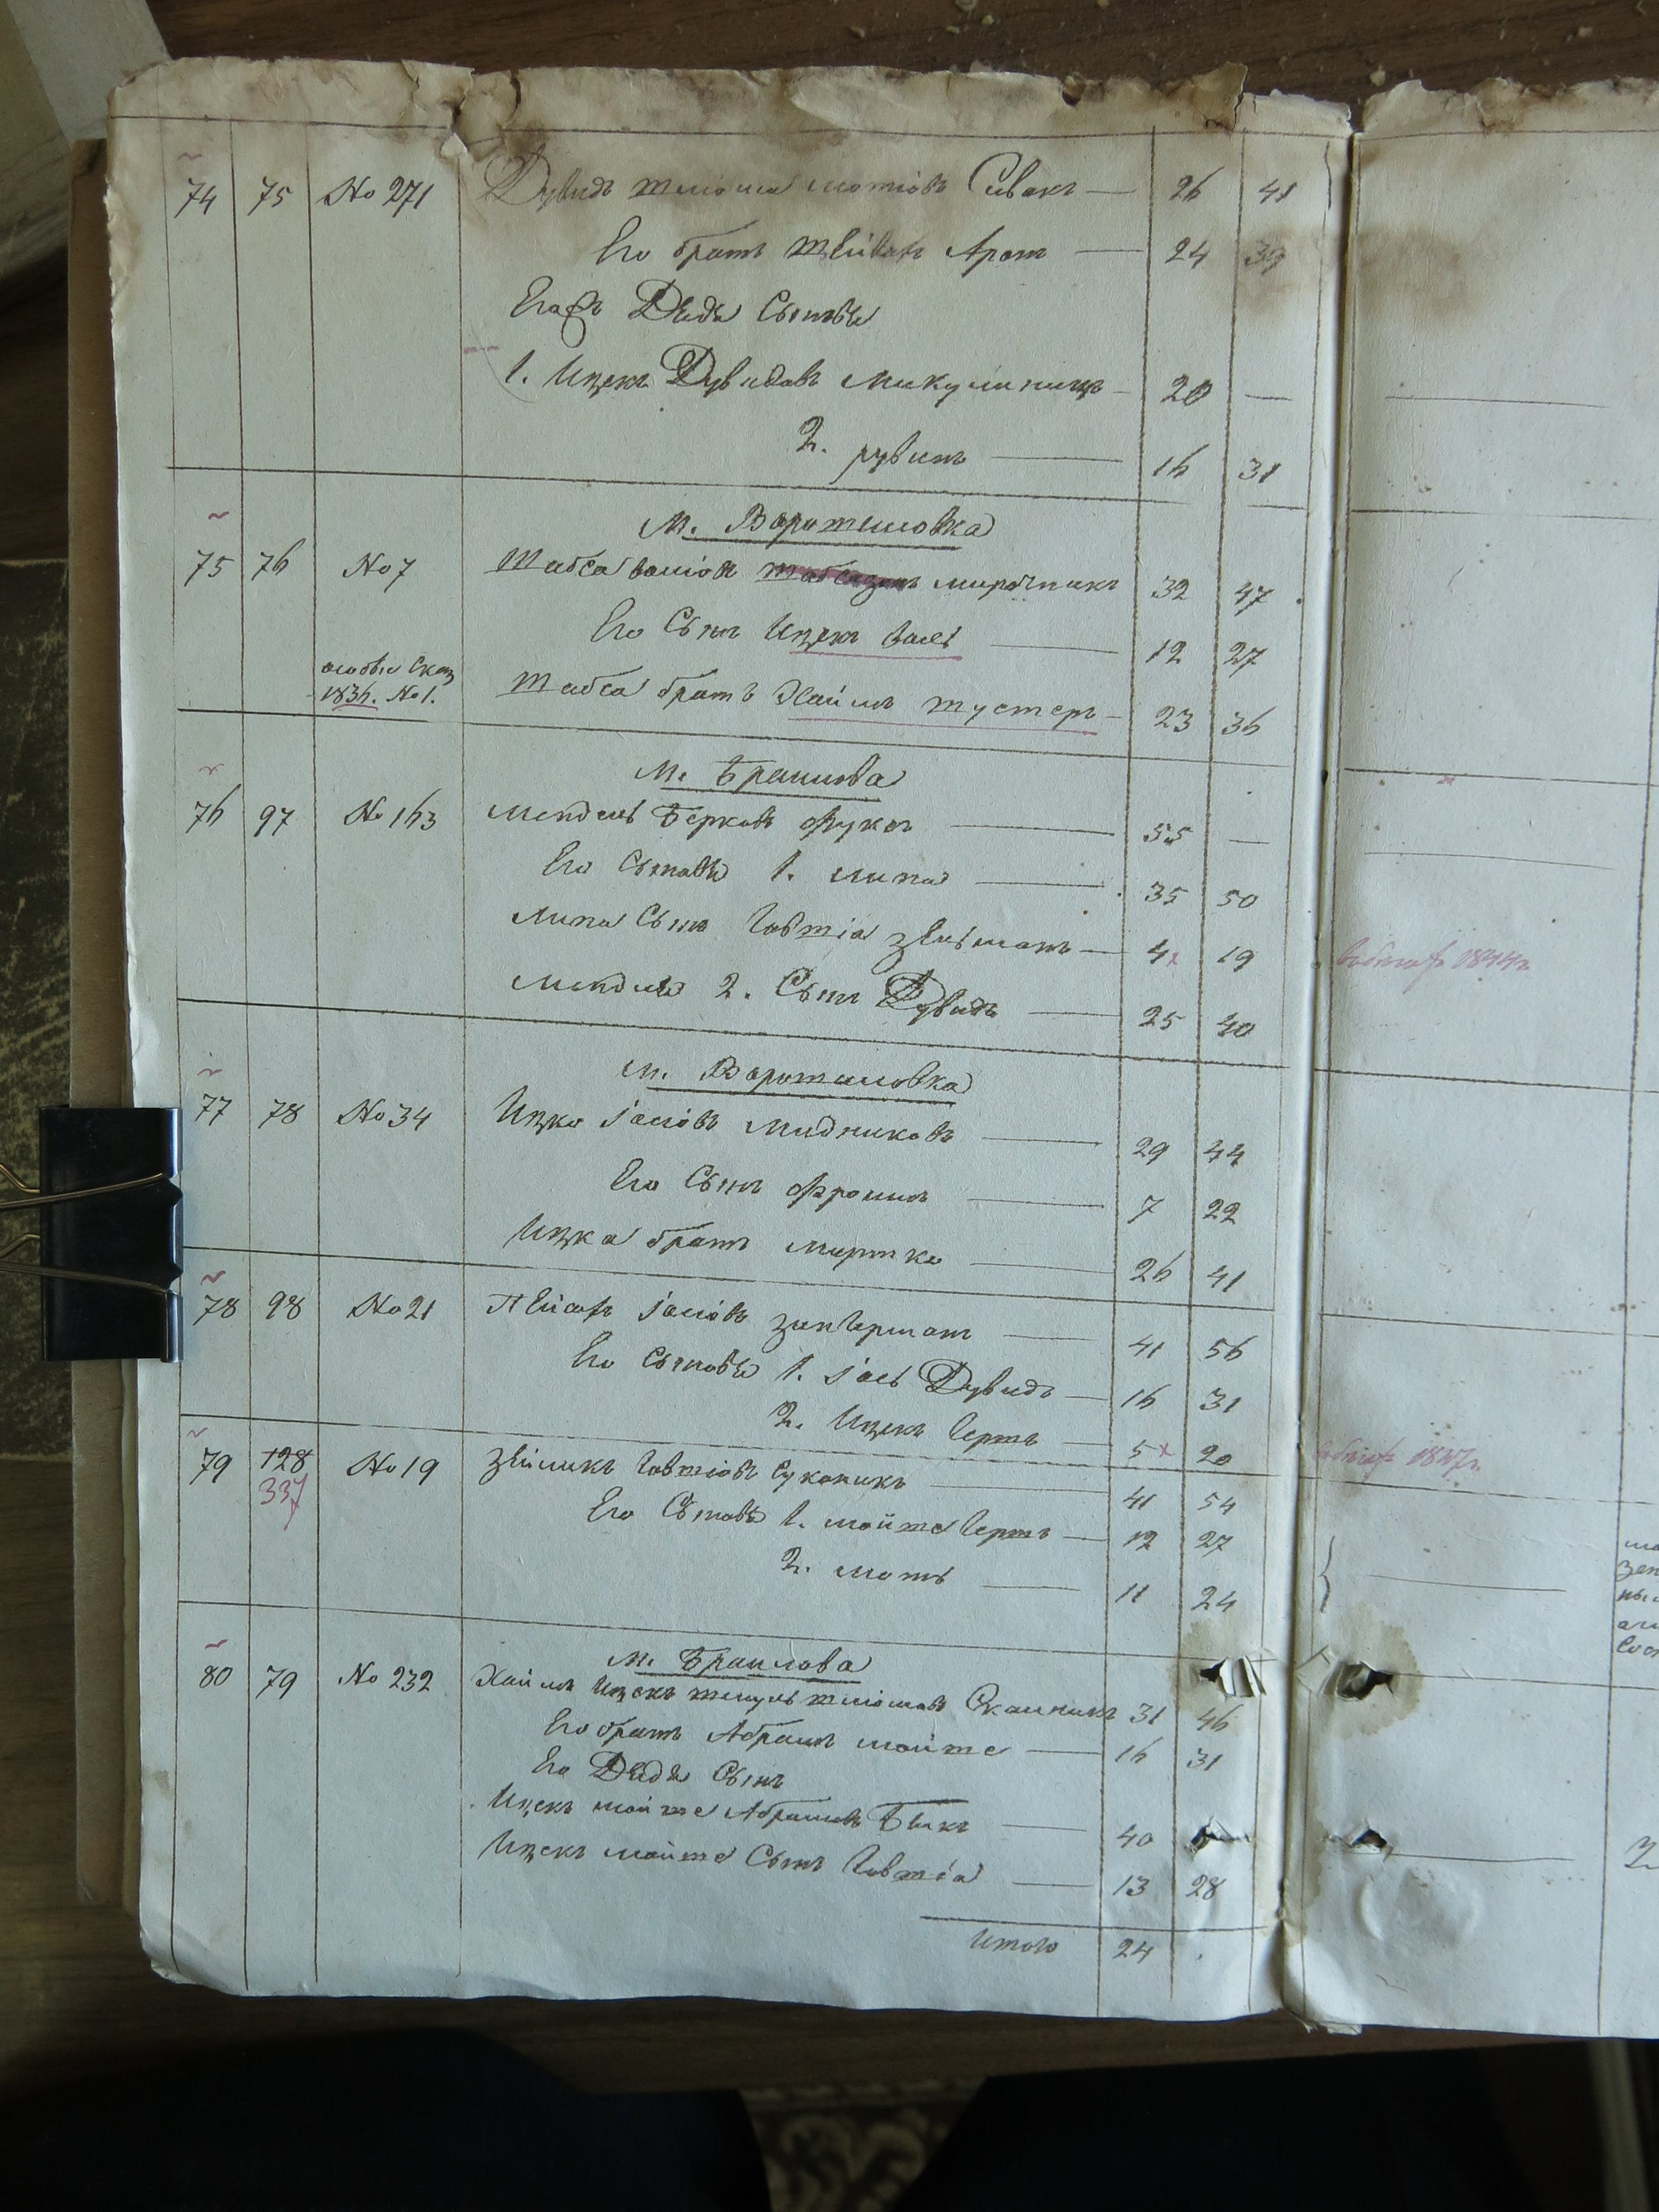 74 75 No 271 Дувидъ Шліома Мотіовъ Сивакъ — 26 41
Его братъ Шейвахъ Аронъ — 24 39
Егожъ Дяди Сыновья
1. Ицекъ Дувидовъ Микулинецъ — 20 —
2. рувинъ — 16 31
М. Ворошиловка
75 76 No 7 Шабса іосіовъ мирочникъ 32 47
Его Сынъ Ицекъ іось — 12 27
особы Сказ
1836. No 1. Шабса братъ Хаимъ шустеръ — 23 36
М. Браилова
76 97 No 163 Мендель Берковъ Фуксъ — 55 —
Его Сыновья 1. Липа — 35 50
Липы Сынъ Іовшія — 4 19
Менделя 2. Сынъ Дувидъ — 25 40
М. Ворошиловка
77 78 No 34 Ицко Іосіовъ Мидниковъ — 29 44
Его Сынъ Фроимъ — 7 22
Ицка братъ Мортко — 26 41
78 98 No 21 Пейсахъ Іосіовъ — 41 56
Его Сыновья 1. Іось Дувидъ — 16 31
2. Ицекъ Гершъ — 5 20
79 128 No 19 Зейликъ Іовшіовъ Суконикъ — 41 54
337
Его Сыновья 1. Мойше Гершъ — 12 27
2. Моть — 11 24
М. Браилова
80 79 No 232 Хаимъ Ицекъ Шліомовъ 31 46
Его братъ Абрамъ Мойше — 16 31
Его Дяди Сынъ
Ицекъ Мойше Абрамовъ Быкъ — 40
Ицекъ Мойше Сынъ Іовшія — 13 28
Итого 24
1844
1847